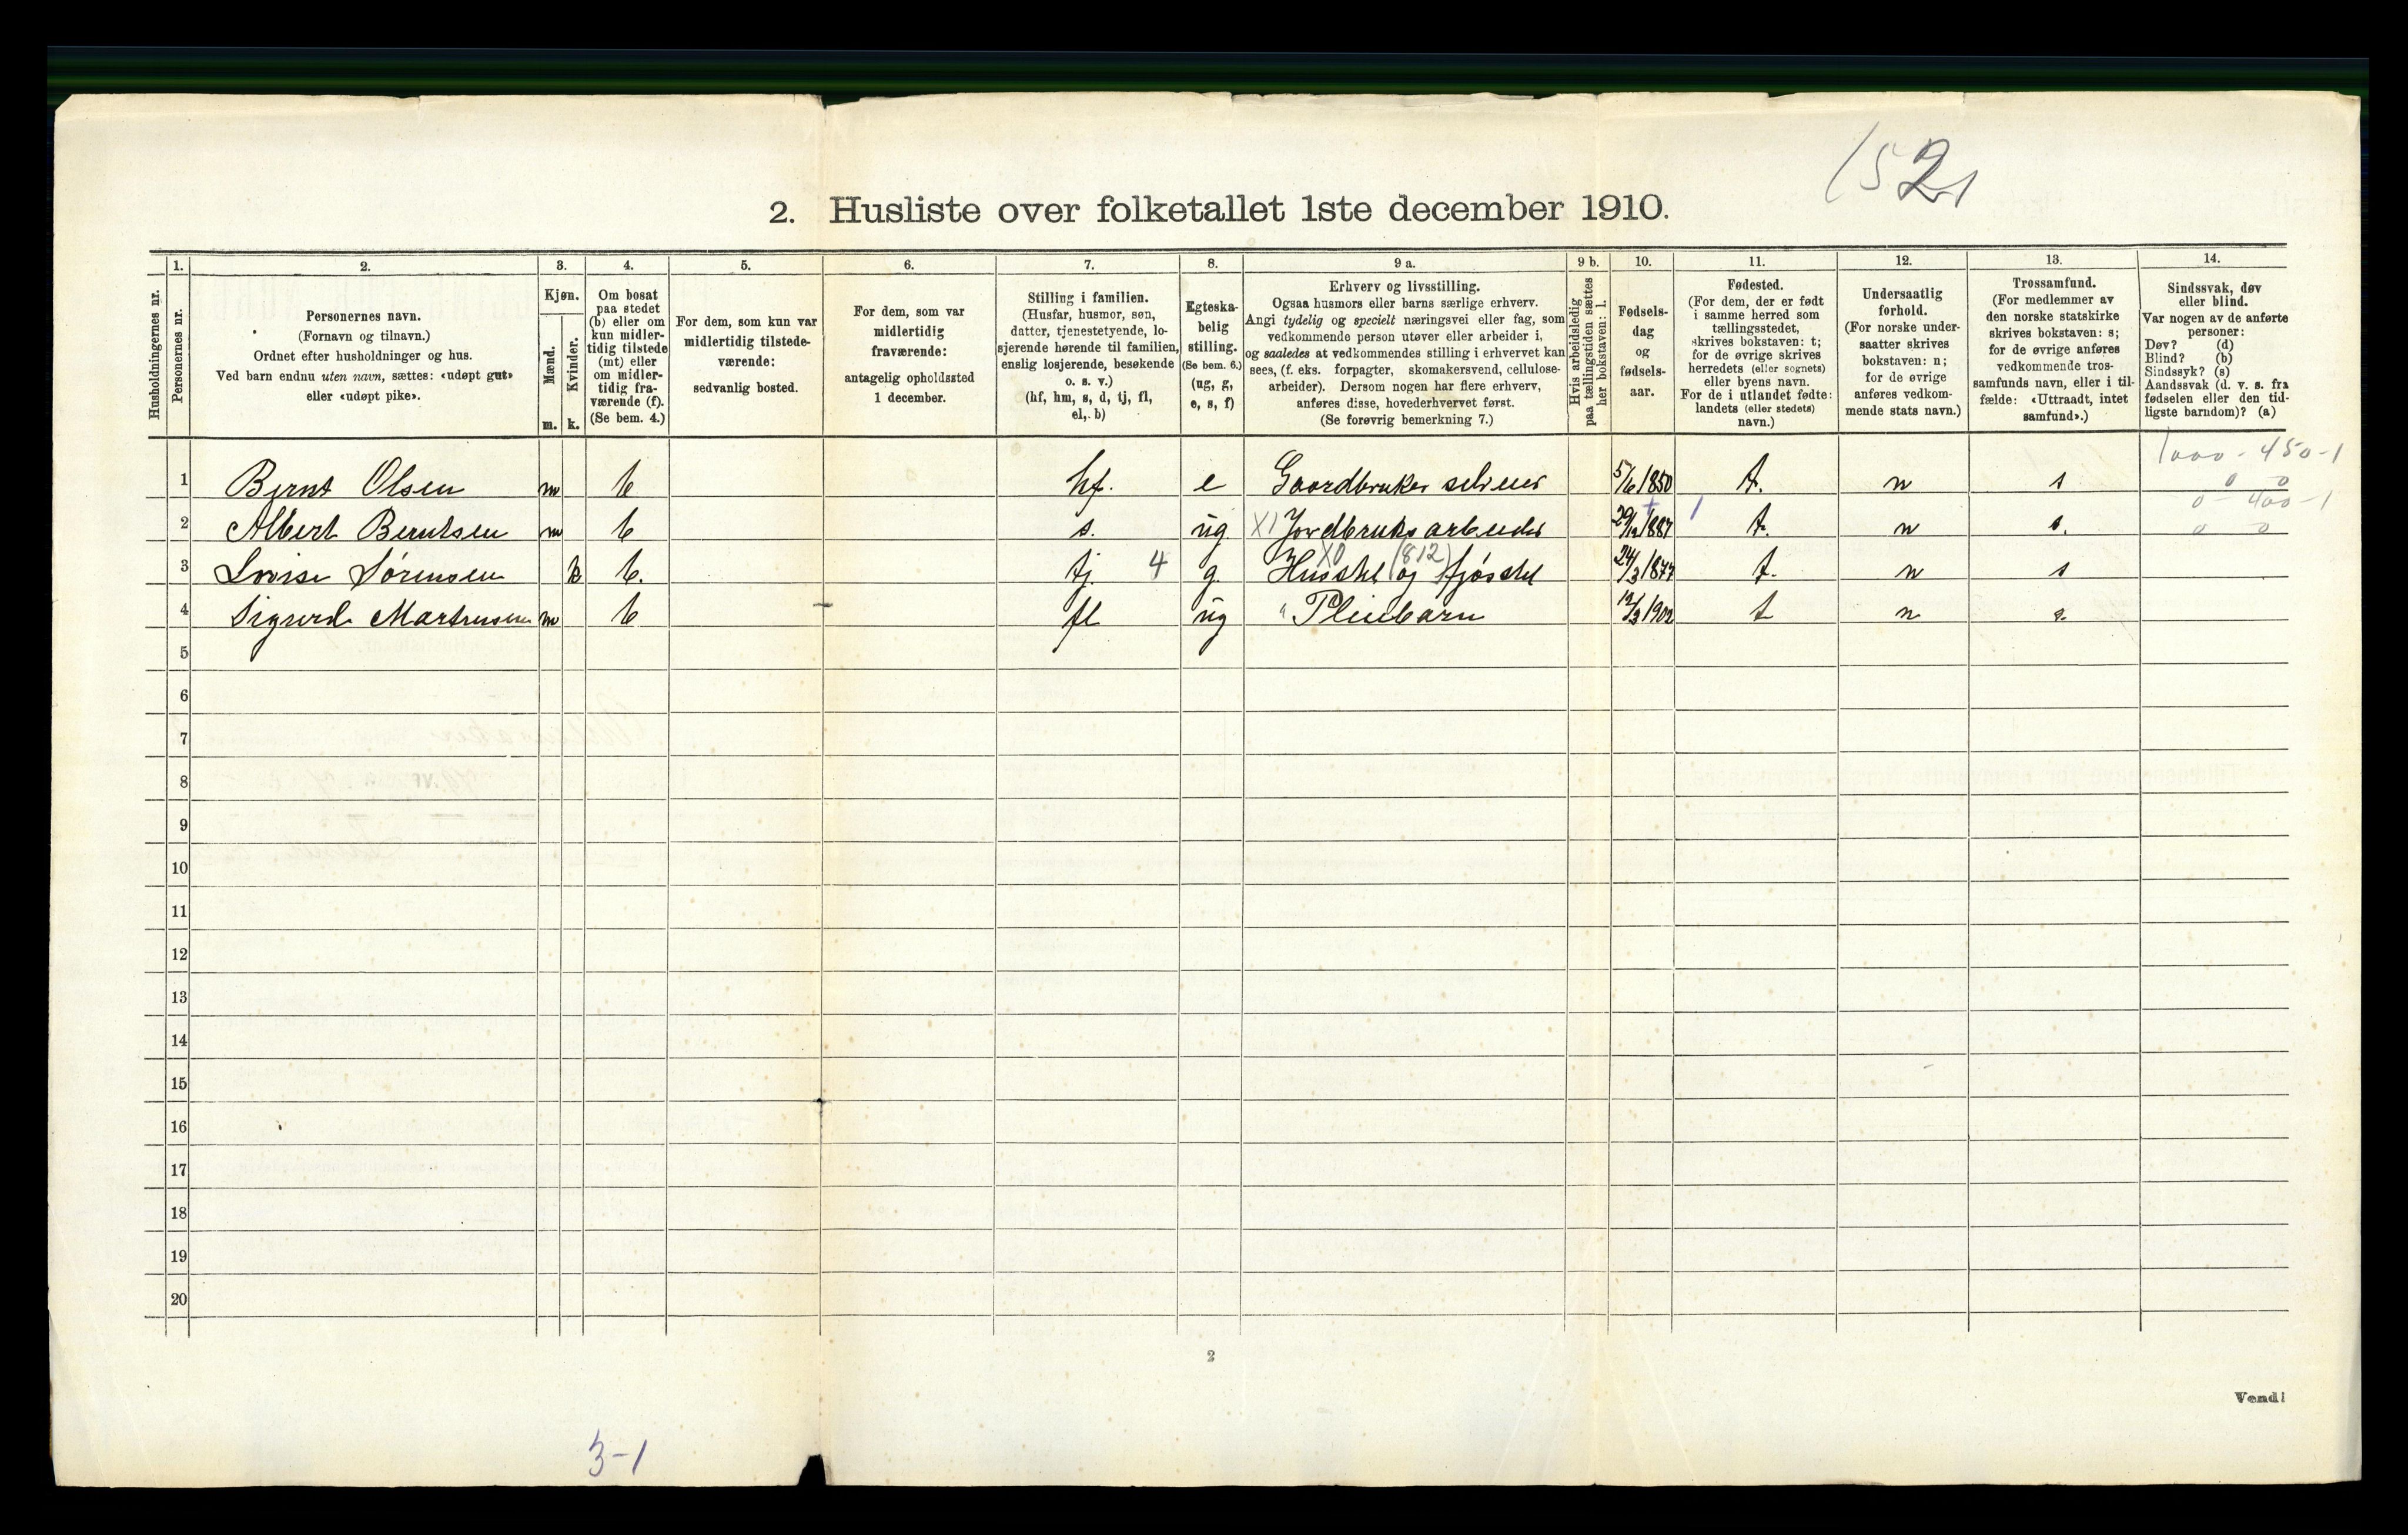 1521
2. Husliste over folketallet 1ste december 1910.
Husholdningernes nr.
1.
Personernes nr.
2.
Personernes navn.
(Fornavn og tilnavn.)
Ordnet efter husholdninger og hus.
Ved barn endnu uten navn, sættes: «udøpt gut»
eller «udøpt pike».
3.
Kjøn.
Mænd.
Kvinder.
m. k.
4.
Om bosat
paa stedet
(b) eller om
kun midler-
tidig tilstede
(mt) eller
om midler-
tidig fra-
værende (f).
(Se bem. 4.)
5.
For dem, som kun var
midlertidig tilstede-
værende:
sedvanlig bosted.
6.
For dem, som var
midlertidig
fraværende:
antagelig opholdssted
1 december.
7.
Stilling i familien.
(Husfar, husmor, søn,
datter, tjenestetyende, lo-
sjerende hørende til familien,
enslig losjerende, besøkende
o. s. v.)
(hf, hm, s, d, tj, fl,
el, b)
8.
Egteska-
belig
stilling.
(Se bem. 6.)
(ug, g,
e, s, f)
9 a.
Erhverv og livsstilling.
Ogsaa husmors eller barns særlige erhverv.
Angi tydelig og specielt næringsvei eller fag, som
vedkommende person utøver eller arbeider i,
og saaledes at vedkommendes stilling i erhvervet kan
sees, (f. eks. forpagter, skomakersvend, cellulose-
arbeider). Dersom nogen har flere erhverv,
anføres disse, hovederhvervet først.
(Se forøvrig bemerkning 7.)
9 b.
Hvis arbeidsledig
paa tællingstiden sættes
her bokstaven: l.
10.
Fødsels-
dag
og
fødsels-
aar.
11.
Fødested.
(For dem, der er født
i samme herred som
tællingsstedet,
skrives bokstaven: t;
for de øvrige skrives
herredets (eller sognets)
eller byens navn.
For de i utlandet fødte:
landets (eller stedets)
navn.)
12.
Undersaatlig
forhold.
(For norske under-
saatter skrives
bokstaven: n;
for de øvrige
anføres vedkom-
mende stats navn.)
13.
Trossamfund.
(For medlemmer av
den norske statskirke
skrives bokstaven: s;
for de øvrige anføres
vedkommende tros-
samfunds navn, eller i til-
fælde: «Uttraadt, intet
samfund».)
14.
Sindssvak, døv
eller blind.
Var nogen av de anførte
personer:
Døv? (d)
Blind? (b)
Sindssyk? (s)
Aandssvak (d. v. s. fra
fødselen eller den tid-
ligste barndom)? (a)
1000 - 450-1
1 Bernt Olsen m b hf. e Gaardbruker selveier 5/6 1850 t. n s 0 0
0 - 400-1
2 Albert Berntsen m b s. ug X1 Jordbruksarbeider 29/12 1887 1 t. n s. 0 0
X0 (812)
3 Lovise Sørensen k b. tj. 4 g. Husstel og fjøsstel 24/3 1877 t. n s
4 Sigurd Martinsen m b fl ug " Pleiebarn 12/3 1902 t n s.
5
6
7
8
9
10
11
12
13
14
15
16
17
18
19
20
2
Vend!
3-1